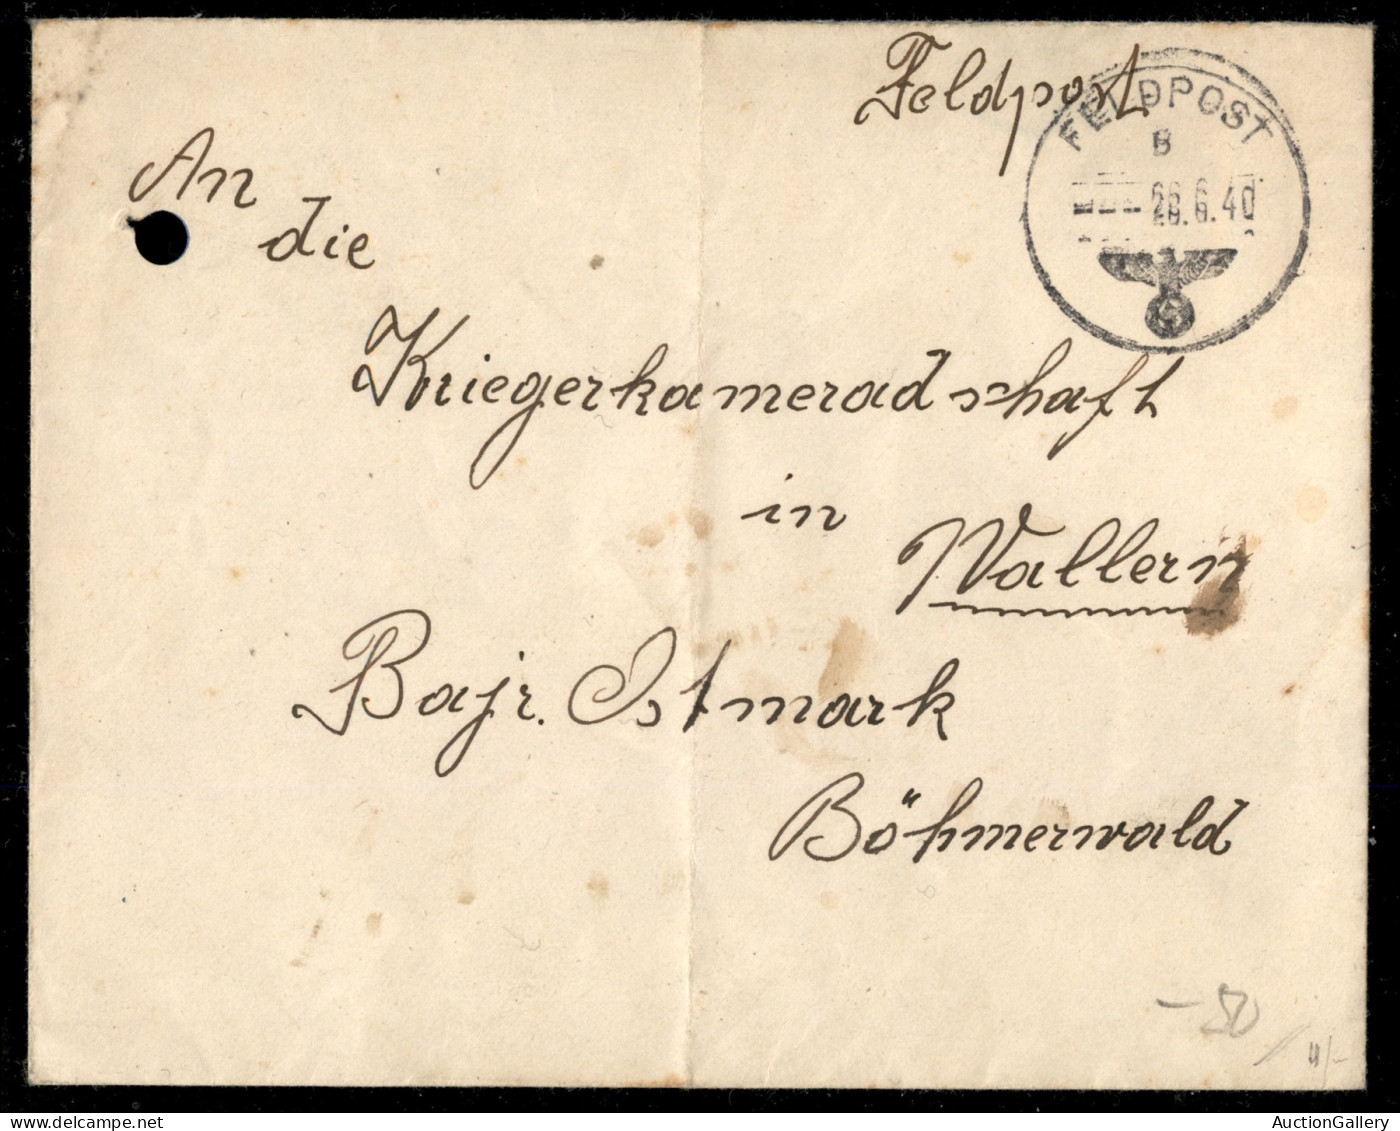 Feldpost
FELDPOST
B
26.6.40
An
die
Kriegerkameradschaft
in
Wallern
Bayr. Ostmark
Böhmerwald
-50
4/-
AuctionGallery